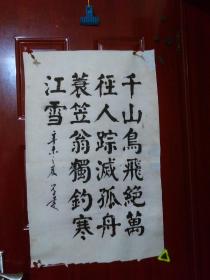 千山鳥飛絕萬
徑人踪滅孤舟
蓑笠翁獨釣寒
江雪